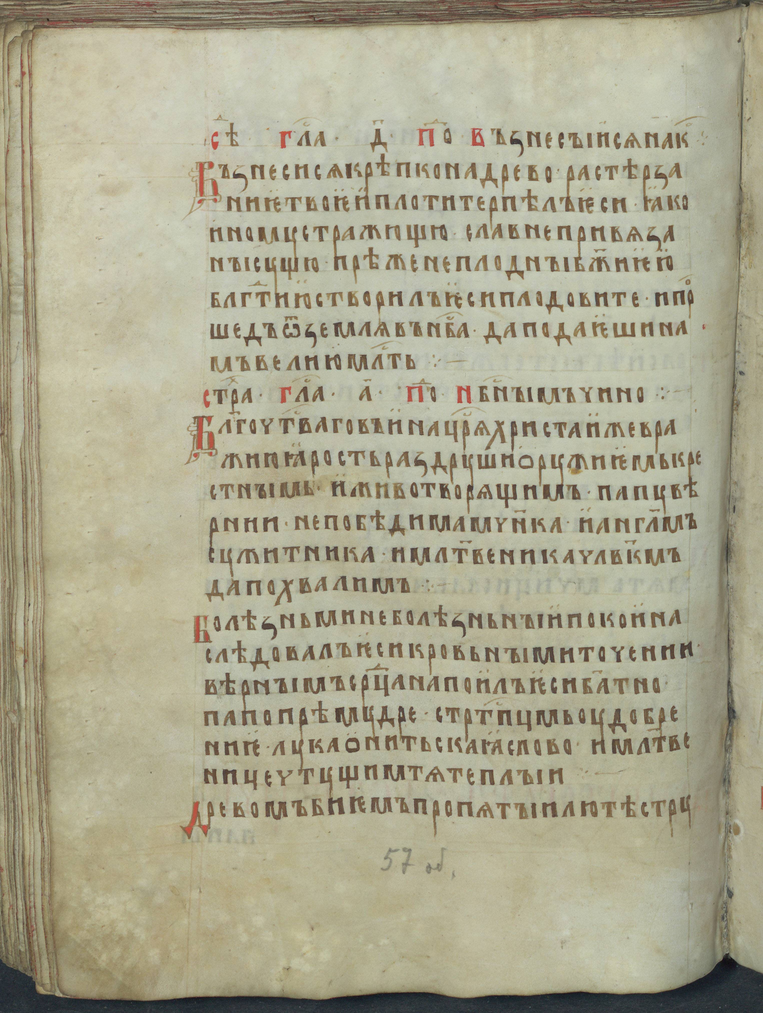 сѣ гла · д҃ · по възнесыисѧ на к
Възнесисѧ крѣпко на древо · растѣрза
ниѥ твоѥи плоти терпѣлъ ѥси · ꙗко
иномꙋ стражищю · славне привѧза
нъ сꙋщю · прѣже неплодны бж҃иѥю
блг҃тию створилъ ѥси плодовите · и при
шедъ ѿ землѧ въ нб҃а · да подаѥши на
мъ велию мл҃ть :—
стра · гла · а҃ · по нб҃нымъ чино :—
Блг҃оутваговѣина црѧ христа иже вра
жию ꙗрость раздрꙋши орꙋжиѥмь кре
стнымь · и животворѧщимъ · папꙋ вѣ
рнии · непобѣдима мчн҃ка · и англ҃мъ
сꙋжитника · и мл҃твеника чл҃вкмъ
да похвалимъ :
Болѣзньми неболѣзньныи покои на
слѣдовалъ ѥси кровьными точении ·
вѣрнымъ ср҃ца напоилъ ѥси бл҃гтно ·
папо прѣмꙋдре · стрт҃пцмь оудобре
ниѥ · лꙋкаонитьскаꙗ слово · и мл҃тве
ниче чтꙋщимъ тѧ теплыи
Древомъ биѥмъ пропѧтыи лютѣ стрꙋ
57 об.